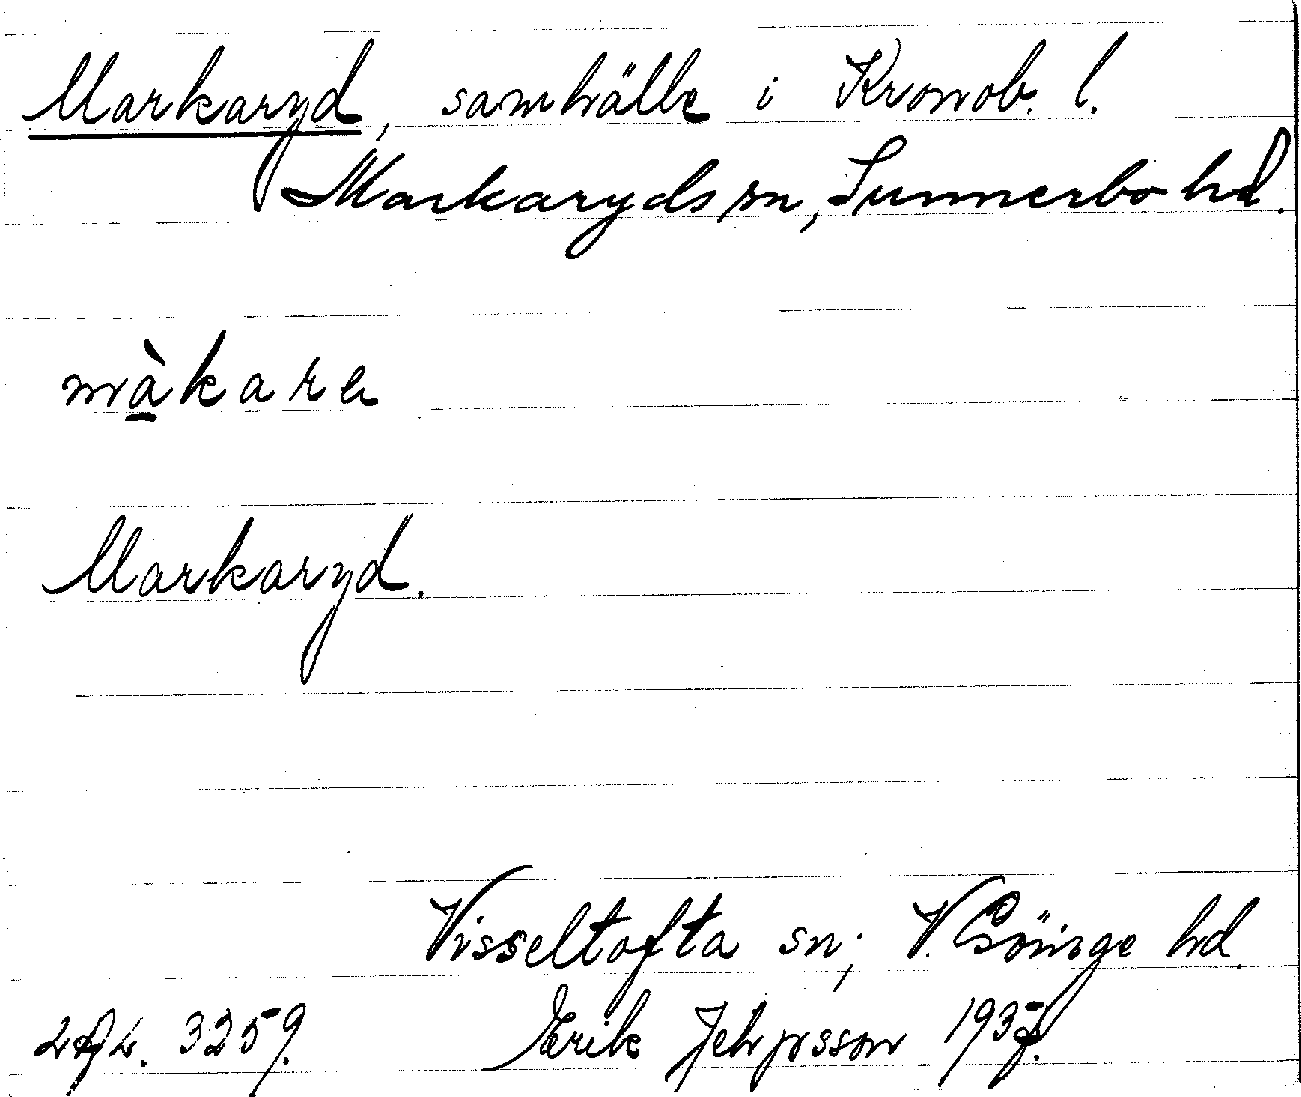 Markaryd, samhälle i Kronob. l.
Markaryds sn, Sunnerbo hd.
màkara
Markaryd.
Visseltofta sn; V. Göinge hd.
3259. Erik Jeppsson 1937.